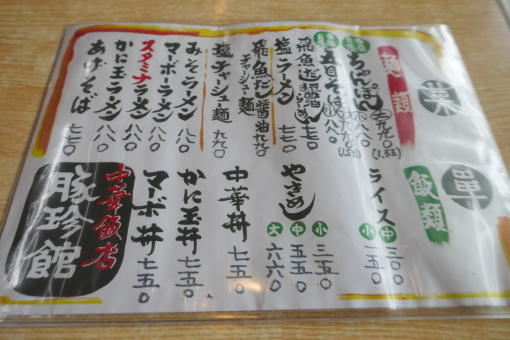 菜單
麺類
ちゃんぽん 小八八〇 大九九〇(1.5玉)
五目そば 小八八〇 大九九〇(1.5玉)
飛魚だし醤油ラーメン 七七〇
塩ラーメン 七七〇
飛魚だし醤油チャーシュー麺 九九〇
塩チャーシュー麺 九九〇
みそラーメン 八八〇
マーボラーメン 八八〇
スタミナラーメン 八八〇
かに玉ラーメン 八八〇
あげそば 七七〇
飯類
ライス 中三〇〇 小一五〇
やきめし 小三五〇 中五五〇 大六六〇
中華丼 七五〇
かに玉丼 七五〇
マーボ丼 七五〇
中華飯店
豚珍館